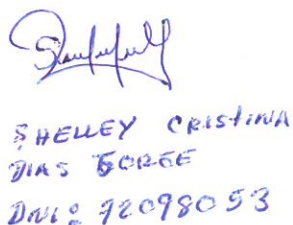 SHELLEY CRISTINA
DIAS BOREE
DNI: 72098053